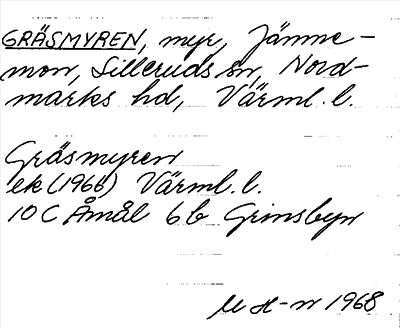 GRÄSMYREN, myr, Jänne-
mon, Silleruds sn, Nord-
marks hd, Värml. l.
Gräsmyren
ek (1966) Värml. l.
10 C Åmål 6b Grinsbyn
M H-n 1968